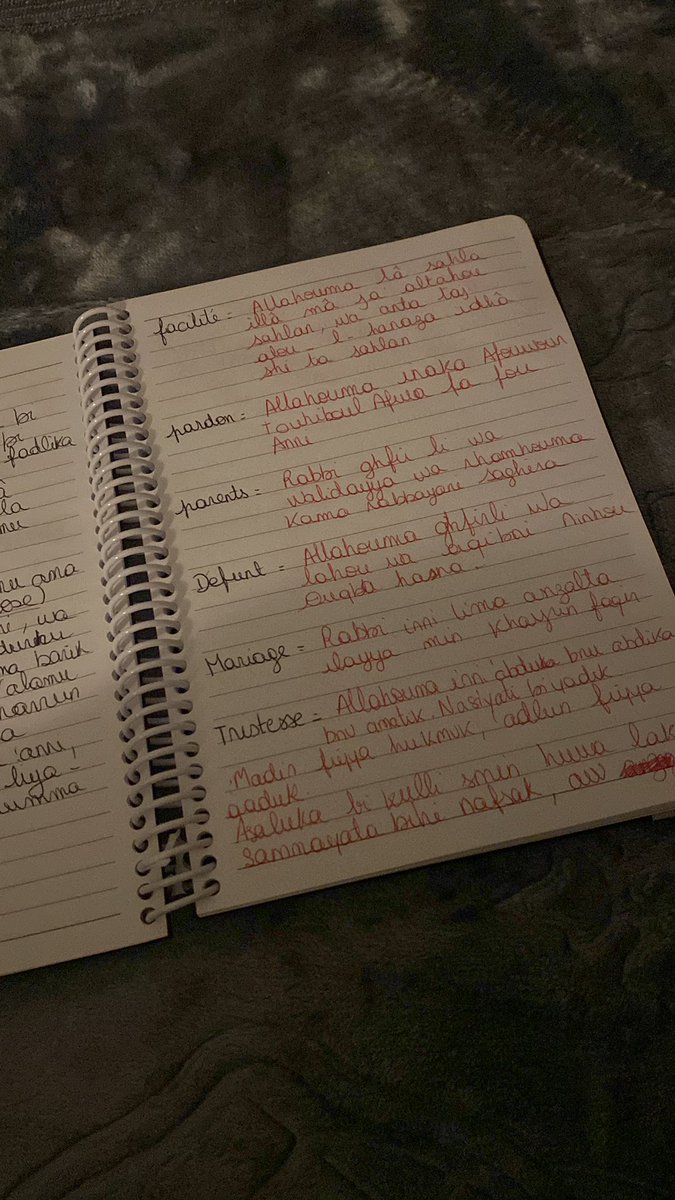 bi
bi
fadlika
la
ana
ni, wa
barik
a'alamu
a
anni,
liya -
umma
facilité = Allahouma lâ sahla
illâ mâ ja altahou
sahlan, wa anta taj
alou - l - hanaza idhâ
shi ta sahlan
pardon = Allahouma inaka Afouwoun
Touhiboul Afwa fa fou
Anni
parents = Rabbi ghfir li wa
walidayya wa rhamhouma
Kama Rabbayani saghira
Défunt = Allahouma ghfirli wa
lahou wa aqibni Minhou
Ouqba hasna.
Mariage = Rabbi inni lima anzalta
ilayya min khayrin faqir
Tristesse = Allahouma inni 'abduka bnu abdika
bnu amatik. Nasiyati bi yadik
Madin fiyya hukmuk, adlun fiyya
qaduk
Asaluka bi kulli smin huwa lak
sammayata bihi nafsak, aw